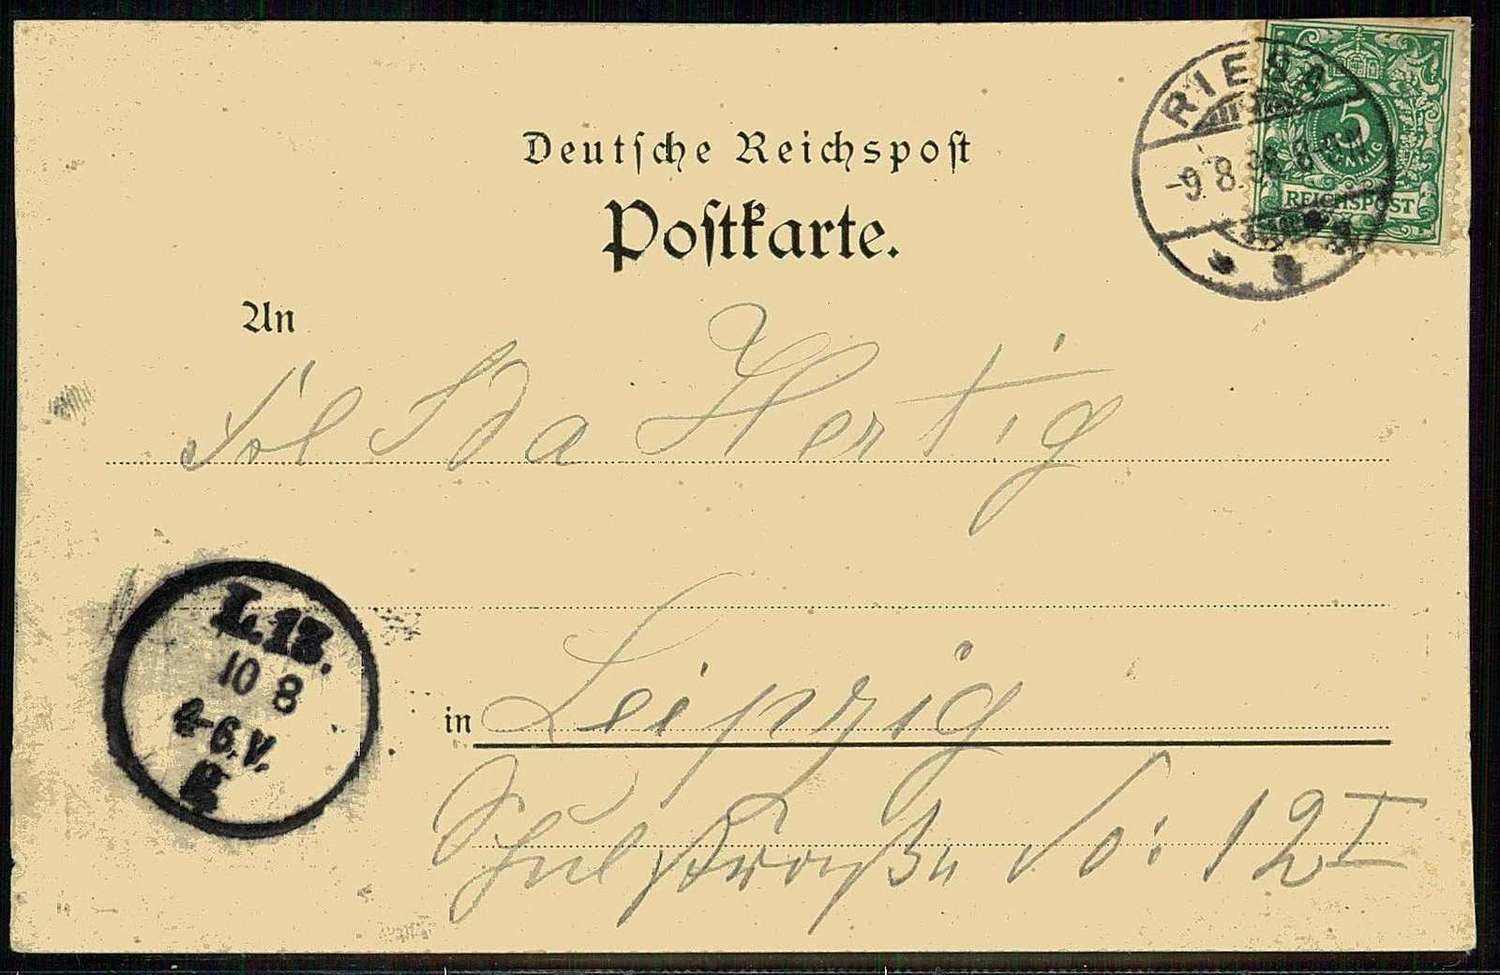 RIESA
-9.8.98. 8-9N
5
PFENNIG
REICHSPOST
Deutsche Reichspost
Postkarte.
An
Frl Ida Hertig
L.13.
10 8
4-6.V.
in Leipzig
Schulstraße No: 12 I